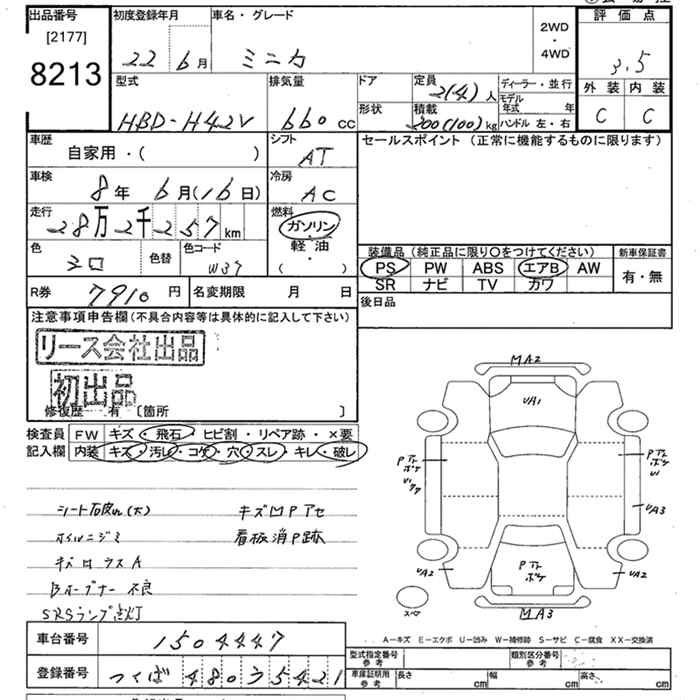 出品番号 初度登録年月 車名・グレード 2WD・4WD 評価点
[2177]
8213 22 6月 ミニカ 3.5
型式 排気量 ドア 定員 2(4)人 ディーラー・並行 外装 内装
形状 積載 200(100)kg モデル年式 年 C C
HBD-H42V 660cc ハンドル 左・右
車歴 シフト セールスポイント (正常に機能するものに限ります)
自家用・( ) AT
車検 冷房
8年6月(16日) AC
走行 燃料
28万2千257km ガソリン
軽油
色 色替 色コード ( )
シロ W37
装備品(純正品に限り○をつけてください) 新車保証書
PS PW ABS エアB AW 有・無
SR ナビ TV カワ
R券 7910円 名変期限 月 日 後日品
注意事項申告欄(不具合内容等は具体的に記入して下さい)
リース会社出品
初出品
修復歴 有 [箇所 ]
検査員 FW キズ・飛石・ヒビ割・リペア跡・×要
記入欄 内装 キズ・汚レ・コゲ・穴・スレ・キレ・破レ
シート石皮れ(大) キズUPアセ
ホイルニジミ 看板消P跡
キズロウスA
Bオープナー不良
SRSランプ点灯
MA2
UA1
PアトボケUA3
UA2
UA2
Pアトボケ
スペア
MA3
A-キズ E-エクボ U-凹み W-補修跡 S-サビ C-腐食 XX-交換済
車台番号 1504447
登録番号 つくば 480う5421
型式指定番号 参考 類別区分番号 参考
車庫証明用 参考 長さ cm 幅 cm 高さ cm